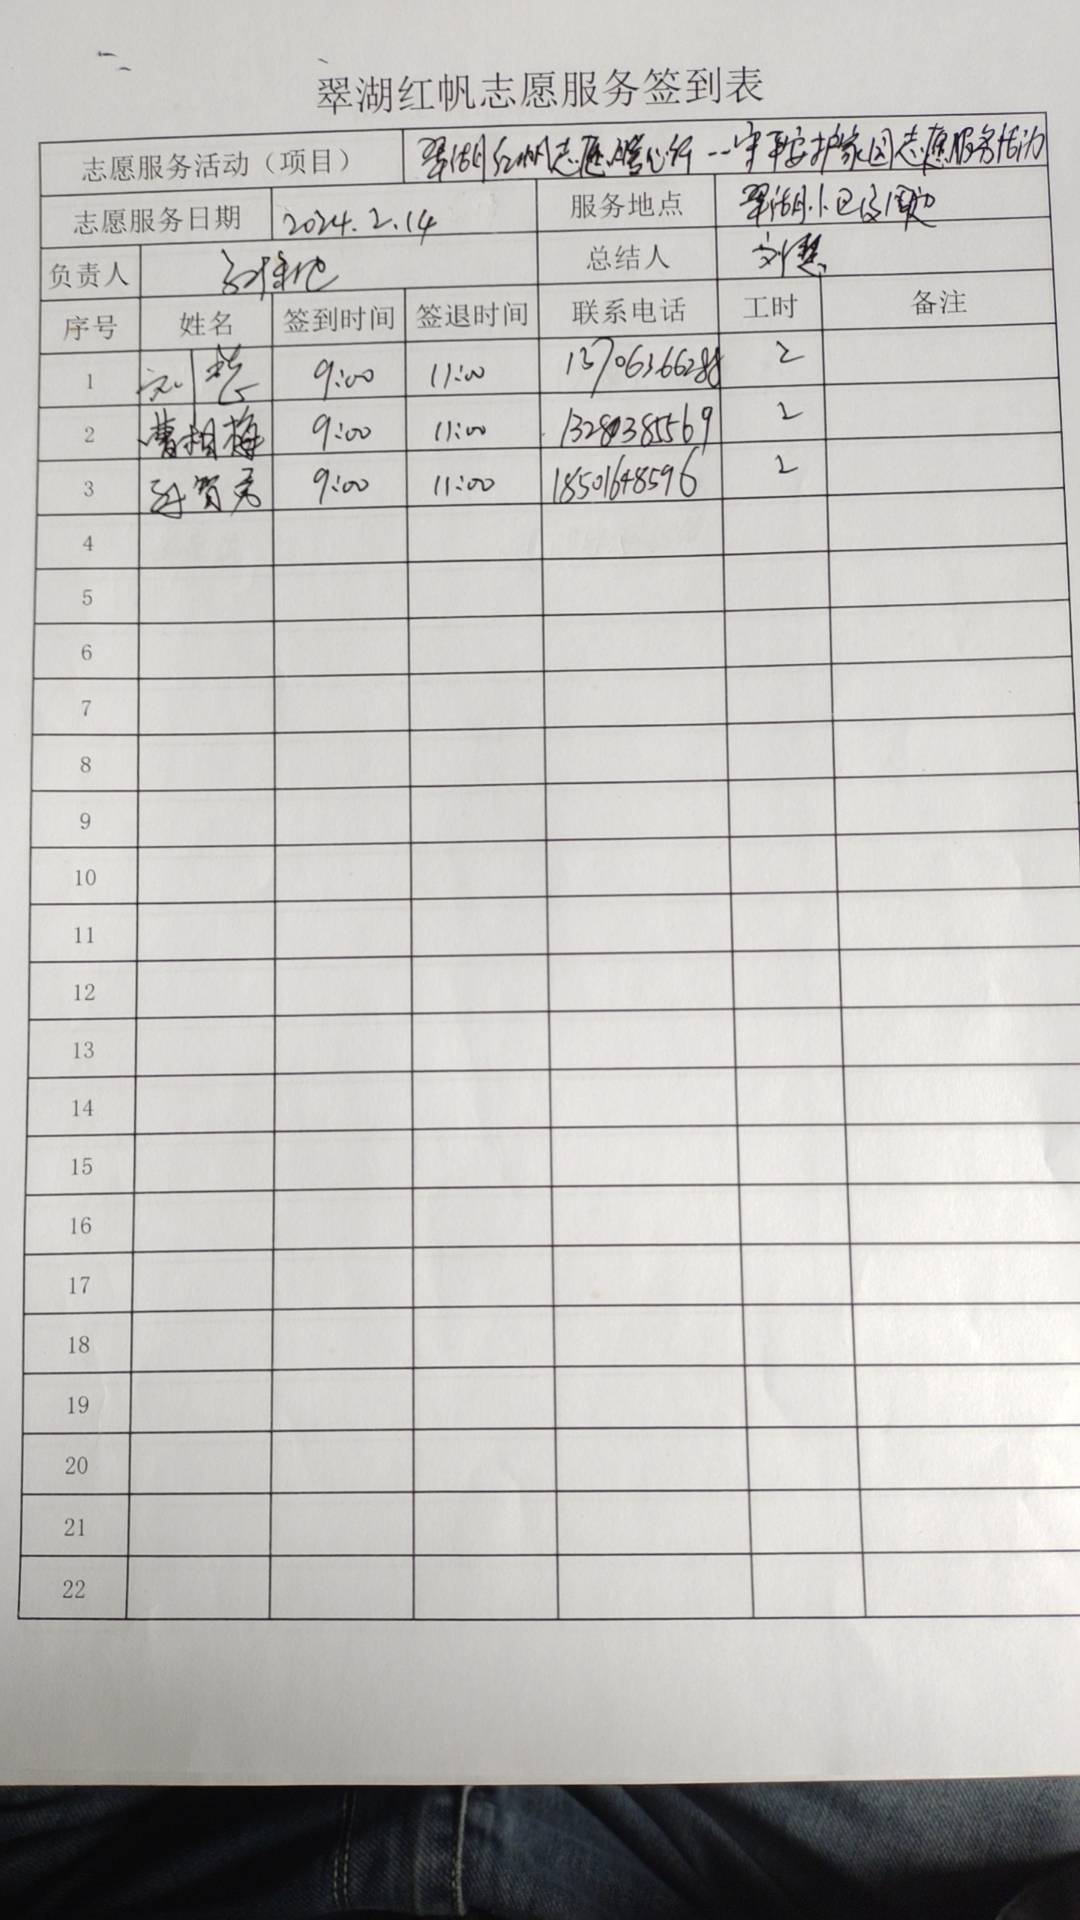 翠湖红帆志愿服务签到表
志愿服务活动（项目） 翠湖红帆志愿暖心行--守平安护家园志愿服务活动
志愿服务日期 2024.2.14 服务地点 翠湖小区及周边
负责人 总结人 刘慧
序号 姓名 签到时间 签退时间 联系电话 工时 备注
1 刘慧 9:00 11:00 13706366288 2
2 曹相梅 9:00 11:00 13280385569 2
3 孙贺君 9:00 11:00 18501648596 2
4
5
6
7
8
9
10
11
12
13
14
15
16
17
18
19
20
21
22